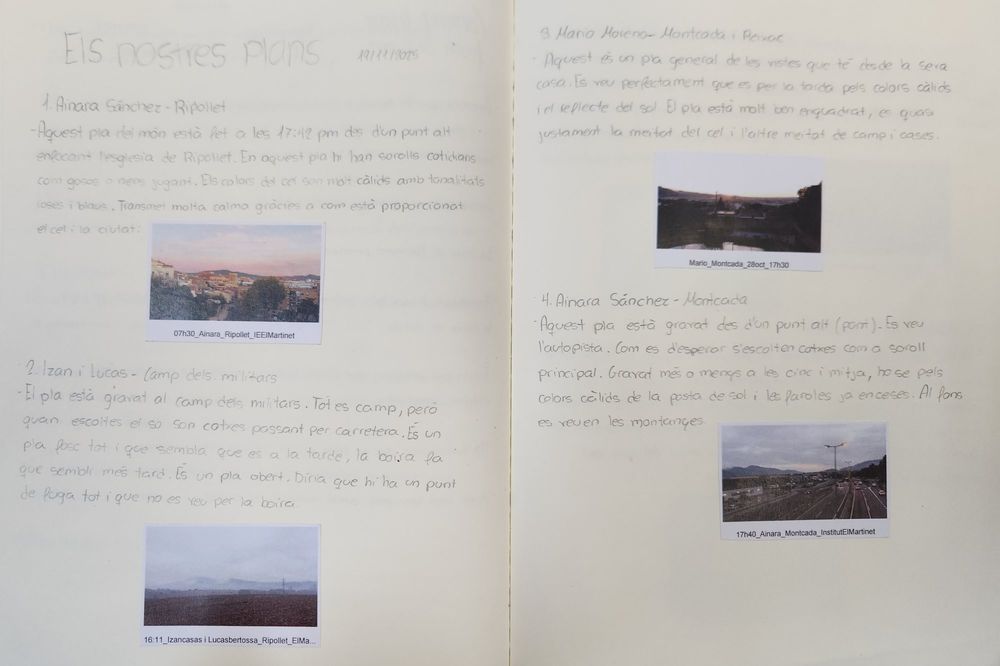 Els nostres plans 19/11/2025
1. Ainara Sánchez - Ripollet
- Aquest pla del món està fet a les 17:42 pm des d'un punt alt
enfocant l'esglesia de Ripollet. En aquest pla hi han sorolls cotidians
com gosos o nens jugant. Els colors del cel son molt càlids amb tonalitats
roses i blaus. Transmet molta calma gràcies a com està proporcionat
el cel i la ciutat.
07h30_Ainara_Ripollet_IEElMartinet
2. Izan i Lucas - Camp dels militars
- El pla està gravat al camp dels militars. Tot es camp, però
quan escoltes el so son cotxes passant per carretera. És un
pla fosc tot i que sembla que es a la tarde, la boira fa
que sembli més tard. És un pla obert. Diria que hi ha un punt
de fuga tot i que no es veu per la boira.
16:11_Izancasas i Lucasbertossa_Ripollet_ElMa...
3. Mario Moreno - Montcada i Reixac
- Aquest és un pla general de les vistes que té desde la seva
casa. Es veu perfectament que es per la tarda pels colors càlids
i el reflecte del sol. El pla està molt ben enquadrat, es quasi
justament la meitat del cel i l'altre meitat de camp i cases.
Mario_Montcada_28oct_17h30
4. Ainara Sánchez - Montcada
- Aquest pla està gravat des d'un punt alt (pont). Es veu
l'autopista. Com es d'esperar s'escolten cotxes com a soroll
principal. Gravat més o menys a les cinc i mitja, ho se pels
colors càlids de la posta de sol i les faroles ja enceses. Al fons
es veuen les montanyes.
17h40_Ainara_Montcada_InstitutElMartinet